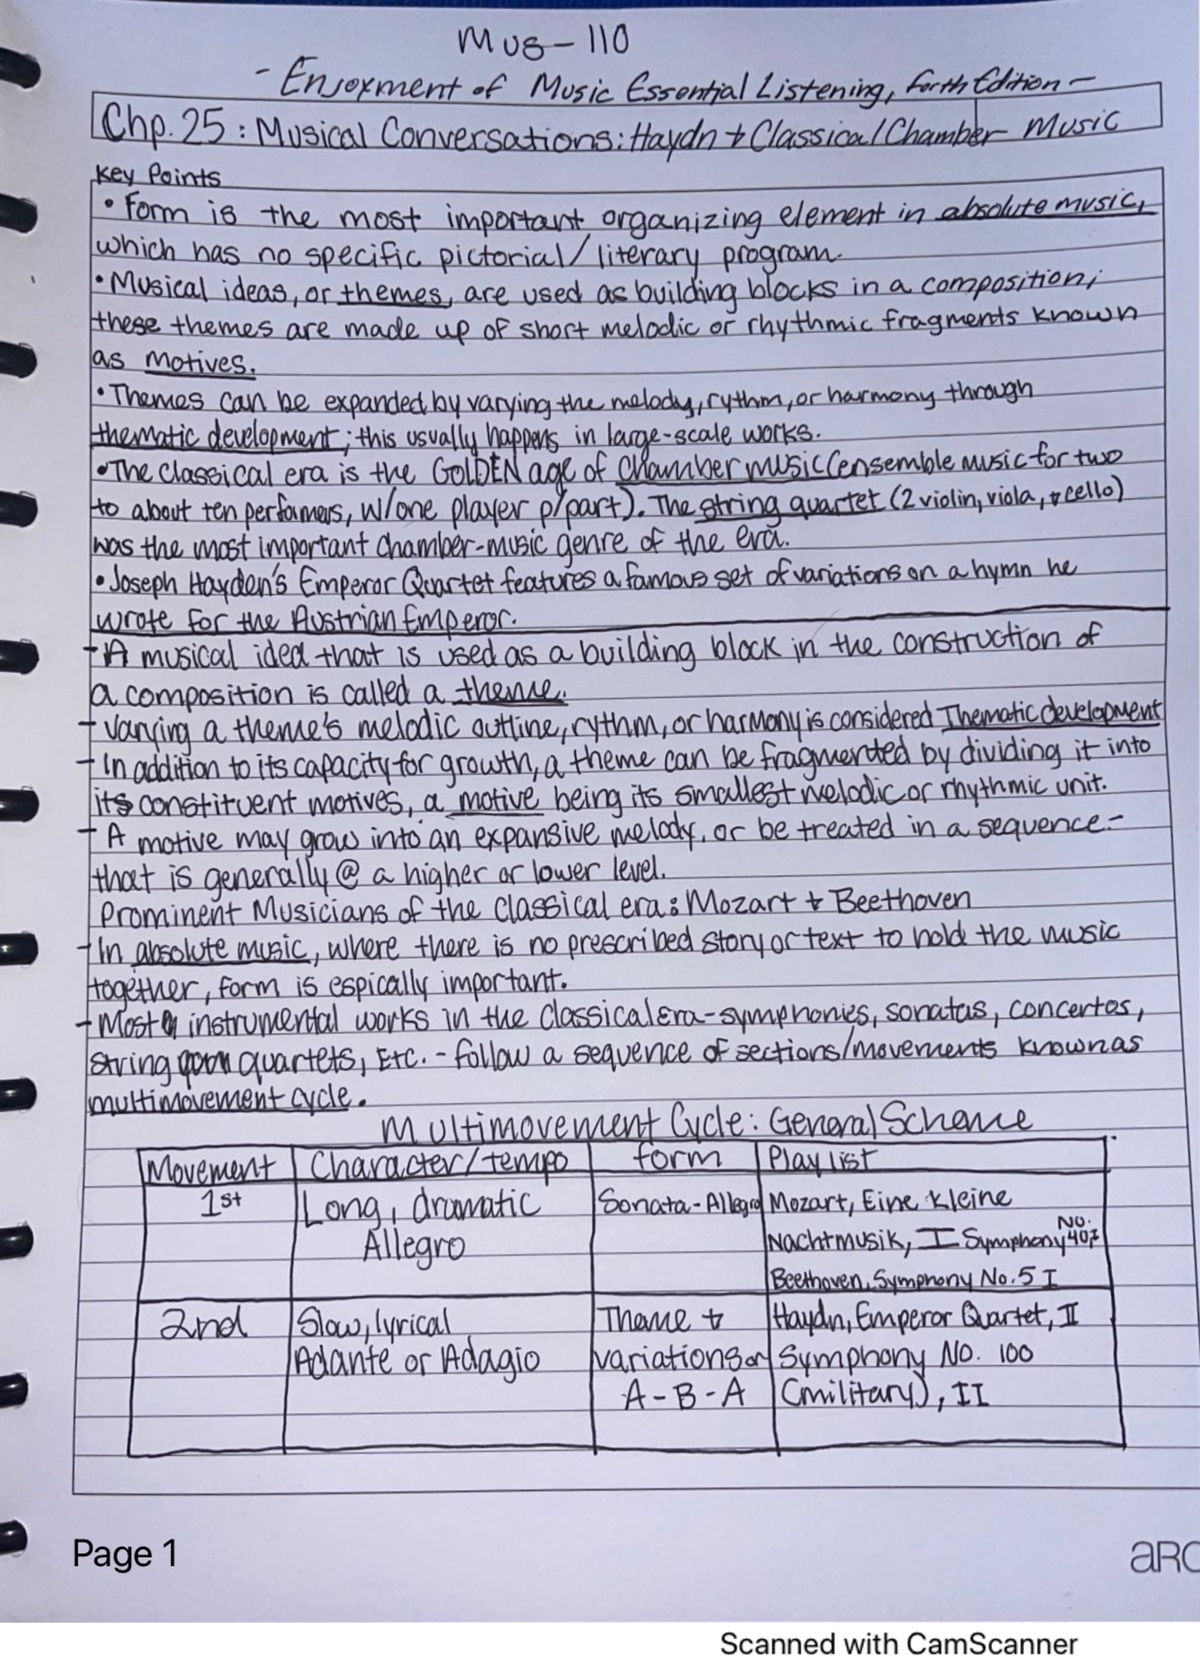 Mus-110
- Enjoyment of Music Essential Listening, forth Edition -
Chp. 25: Musical Conversations: Haydn + Classical Chamber Music
Key Points
• Form is the most important organizing element in absolute music,
which has no specific pictorial/literary program.
• Musical ideas, or themes, are used as building blocks in a composition;
these themes are made up of short melodic or rhythmic fragments known
as motives.
• Themes can be expanded by varying the melody, rythm, or harmony through
thematic development; this usually happens in large-scale works.
• The classical era is the GOLDEN age of chamber music (ensemble music for two
to about ten perfamers, w/one player p/part). The string quartet (2 violin, viola, + cello)
was the most important chamber-music genre of the era.
• Joseph Hayden's Emperor Quartet features a famous set of variations on a hymn he
wrote for the Austrian Emperor.
- A musical idea that is used as a building block in the construction of
a composition is called a theme.
- Varying a theme's melodic outline, rythm, or harmony is considered Thematic development
- In addition to its capacity for growth, a theme can be fragmented by dividing it into
its constituent motives, a motive being its smallest melodic or rhythmic unit.
- A motive may grow into an expansive melody, or be treated in a sequence-
that is generally @ a higher or lower level.
Prominent Musicians of the classical era: Mozart + Beethoven
- In absolute music, where there is no prescribed story or text to hold the music
together, form is espically important.
- Most instrumental works in the Classical Era - symphonies, sonatas, concertos,
string quartets, Etc. - follow a sequence of sections/movements known as
multimovement cycle.
Multimovement Cycle: General Scheme
Movement Character/tempo form Playlist
1st Long, dramatic Sonata-Allegro Mozart, Eine Kleine
Allegro Nachtmusik, I Symphony No. 40,
Beethoven, Symphony No. 5 I
2nd Slow, lyrical Theme + Haydn, Emperor Quartet, II
Adante or Adagio variations or Symphony No. 100
A-B-A (military), II
Page 1
ARC
Scanned with CamScanner